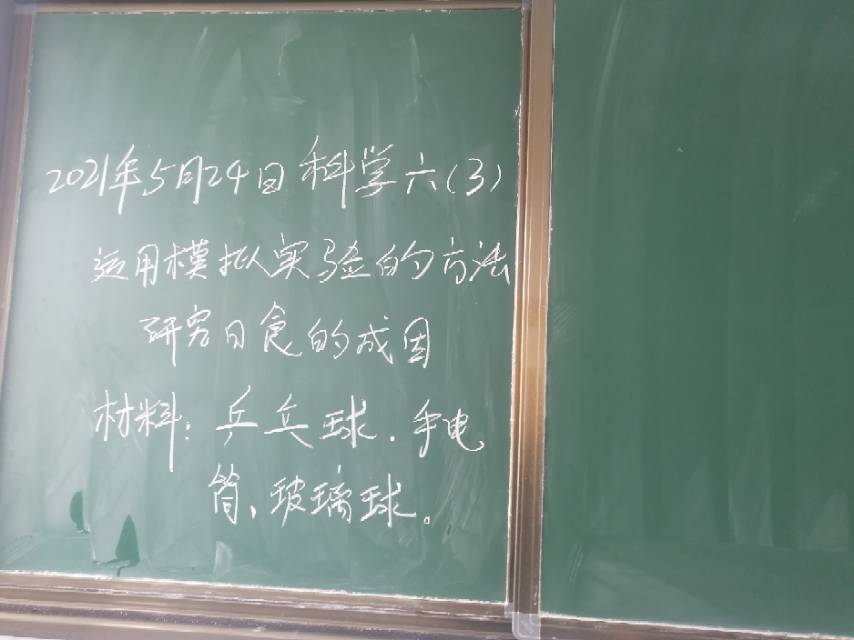 2021年5月24日科学六(3)
运用模拟实验的方法
研究日食的成因
材料:乒乓球.手电
筒、玻璃球。